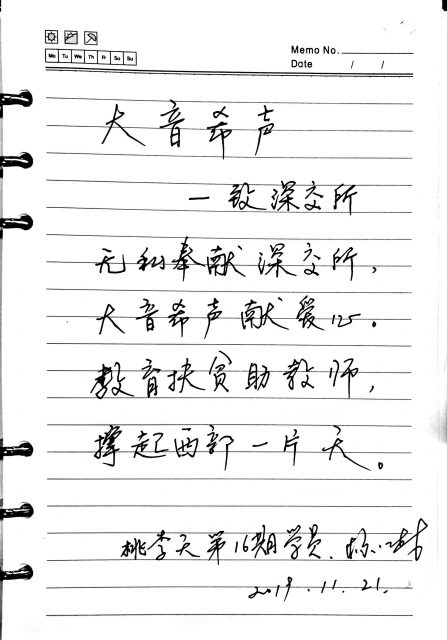 Mo Tu We Th Fr Sa Su
Memo No.
Date / /
大音希声
一致深交所
无私奉献深交所，
大音希声献爱心。
教育扶贫助教师，
撑起西部一片天。
桃李天第16期学员.
2019.11.21.